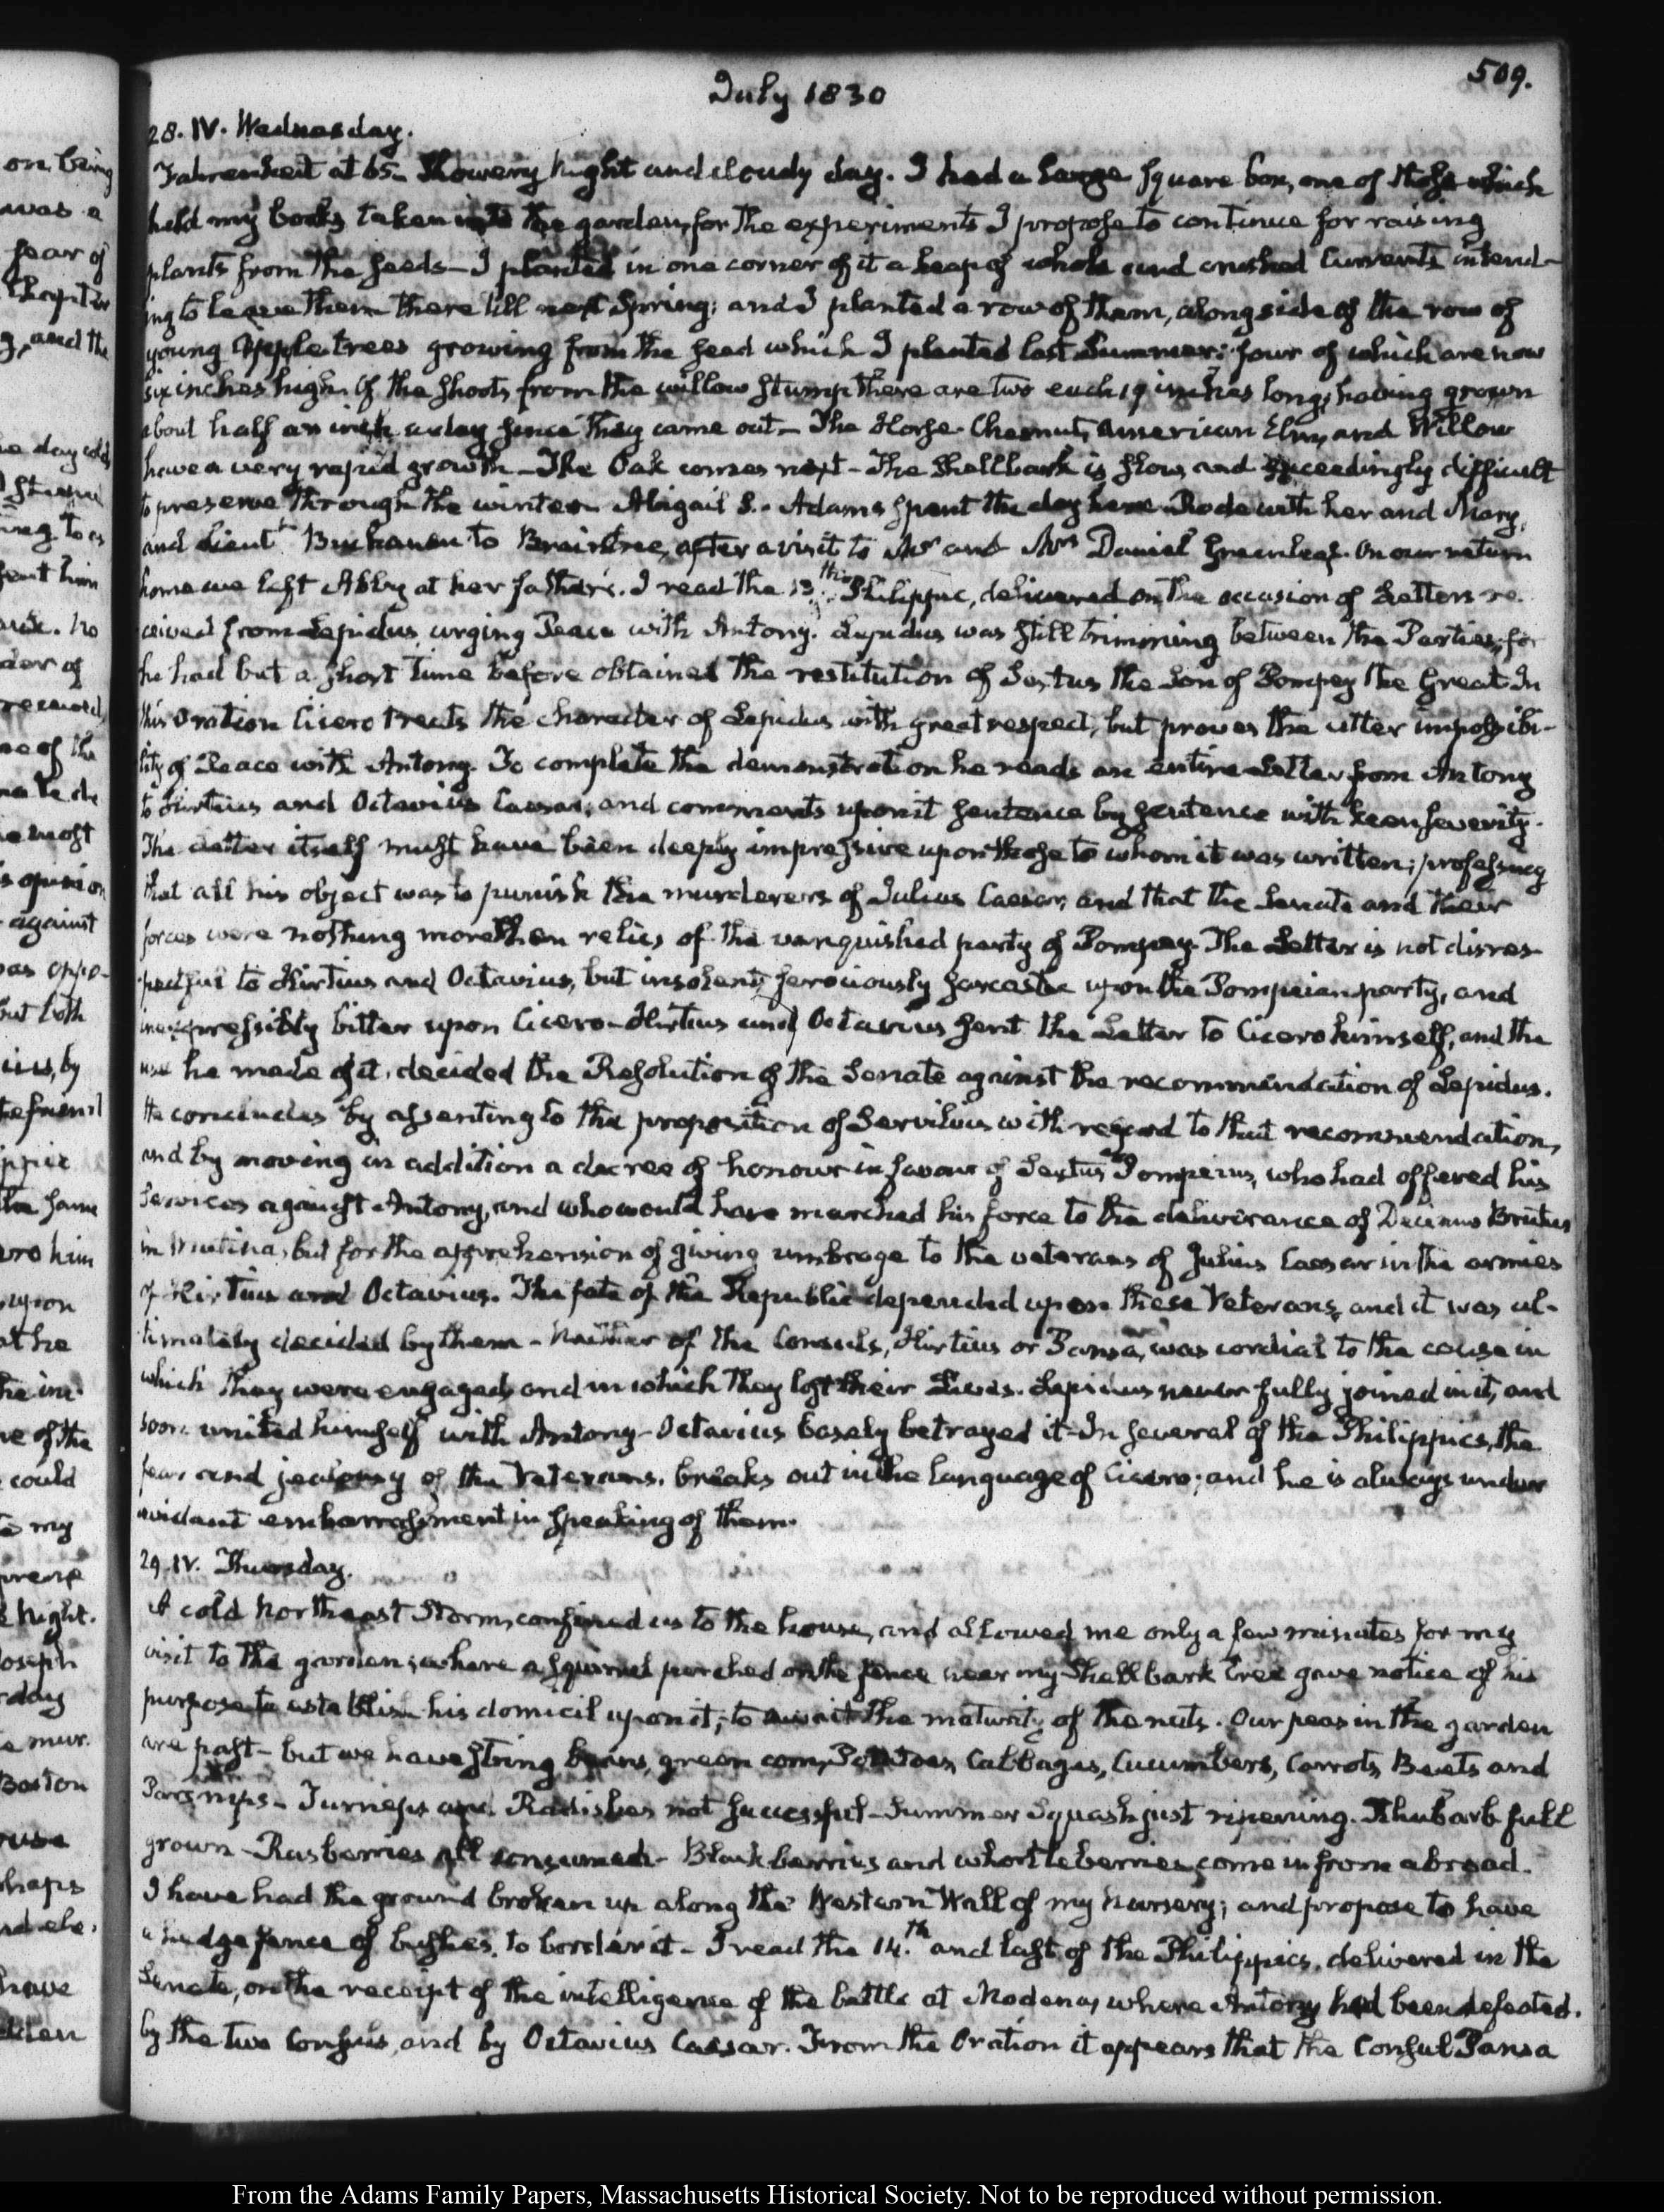 509.
July 1830
28. IV. Wednesday.
Fahrenheit at 65- Showery Night and cloudy day. I had a large square box, one of those which
held my books taken into the garden, for the experiments I propose to continue for raising
plants from the seeds- I planted in one corner of it a heap of whole and crushed Currents intend-
ing to leave them there till next Spring; and I planted a row of them, alongside of the row of
young Apple trees growing from the seed which I planted last Summer: four of which are now
six inches high. Of the shoots from the willow stump there are two each 19 inches long, having grown
about half an inch a day since they came out- The Horse-Chesnut, American Elm, and Willow
have a very rapid growth- The Oak comes next- The Shellbark is slow, and exceedingly difficult
to preserve through the winter. Abigail S. Adams spent the day here. Rode with her and Mary,
and Lieut.t Buchanan to Braintree, after a visit to Mr and Mrs Daniel Greenleaf. On our return
home we left Abby at her father's. I read the 13.th Philippic, delivered on the occasion of Letters re-
ceived from Lepidus, urging Peace with Antony. Lepidus was still trimming between the Parties, for
he had but a short time before obtained the restitution of Sextus the Son of Pompey the Great. In
this Oration Cicero treats the character of Lepidus with great respect, but proves the utter impossibi-
lity of Peace with Antony. To complete the demonstration he reads an entire Letter from Antony
to Hirtius and Octavius Caesar; and comments upon it sentence by sentence with keen severity.
The Letter itself must have been deeply impressive upon those to whom it was written; professing
that all his object was to punish the murderers of Julius Caesar, and that the Senate and their
forces were nothing more than relics of the vanquished party of Pompey. The Letter is not disres-
pectful to Hirtius and Octavius, but insolent, ferociously sarcastic upon the Pompeian party, and
inexpressibly bitter upon Cicero- Hirtius and Octavius sent the Letter to Cicero himself, and the
use he made of it, decided the Resolution of the Senate against the recommendation of Lepidus.
He concludes by assenting to the proposition of Servilius with regard to that recommendation,
and by moving in addition a decree of honour in favour of Sextus Pompeius, who had offered his
services against Antony, and who would have marched his force to the deliverance of Decimus Brutus
in Mutina, but for the apprehension of giving umbrage to the veterans of Julius Caesar in the armies
of Hirtius and Octavius. The fate of the Republic depended upon these Veterans, and it was ul-
timately decided by them- Neither of the Consuls, Hirtius or Pansa, was cordial to the cause in
which they were engaged, and in which they lost their Lives. Lepidus never fully joined in it, and
soon united himself with Antony- Octavius basely betrayed it- In several of the Philippics, the
fear and jealousy of the Veterans, breaks out in the language of Cicero; and he is always under
evident embarrassment in speaking of them.
29. IV. Thursday.
A cold Northeast Storm, confined us to the house, and allowed me only a few minutes for my
visit to the garden; where a squirrel perched on the fence near my Shellbark tree gave notice of his
purpose to establish his domicil upon it; to await the maturity of the nuts. Our peas in the garden
are past- but we have string beans, green corn, Potatoes, Cabbages, Cucumbers, Carrots, Beets and
Parsnips- Turneps and Radishes not successful- Summer Squash just ripening. Rhubarb full
grown- Rasberries all consumed- Blackberries and whortleberries, come in from abroad.
I have had the ground broken up along the Western Wall of my Nursery; and propose to have
a hedge fence of bushes, to border it- I read the 14.th and last of the Philippics, delivered in the
Senate, on the receipt of the intelligence of the battle at Modena, where Antony had been defeated.
by the two Consuls, and by Octavius Caesar. From the Oration it appears that the Consul Pansa
on being
was a
fear of
g, and the
ing to
der of
received
the most
opinion
against
as oppo-
but both
ius, by
the same
upon
at he
of the
could
to my
night.
Joseph
day
Boston
haps
have
From the Adams Family Papers, Massachusetts Historical Society. Not to be reproduced without permission.